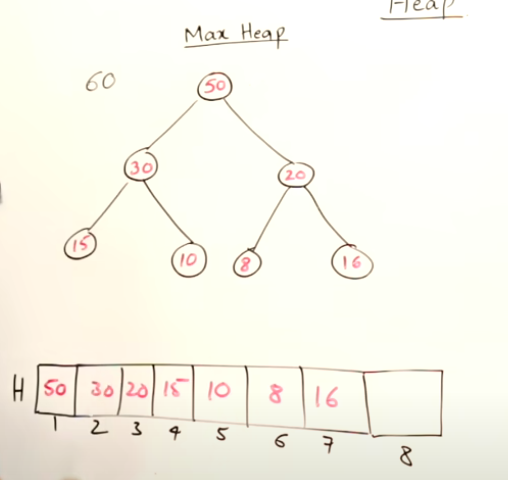 Heap
Max Heap
60
50
30
20
15
10
8
16
H 50 30 20 15 10 8 16
1 2 3 4 5 6 7 8